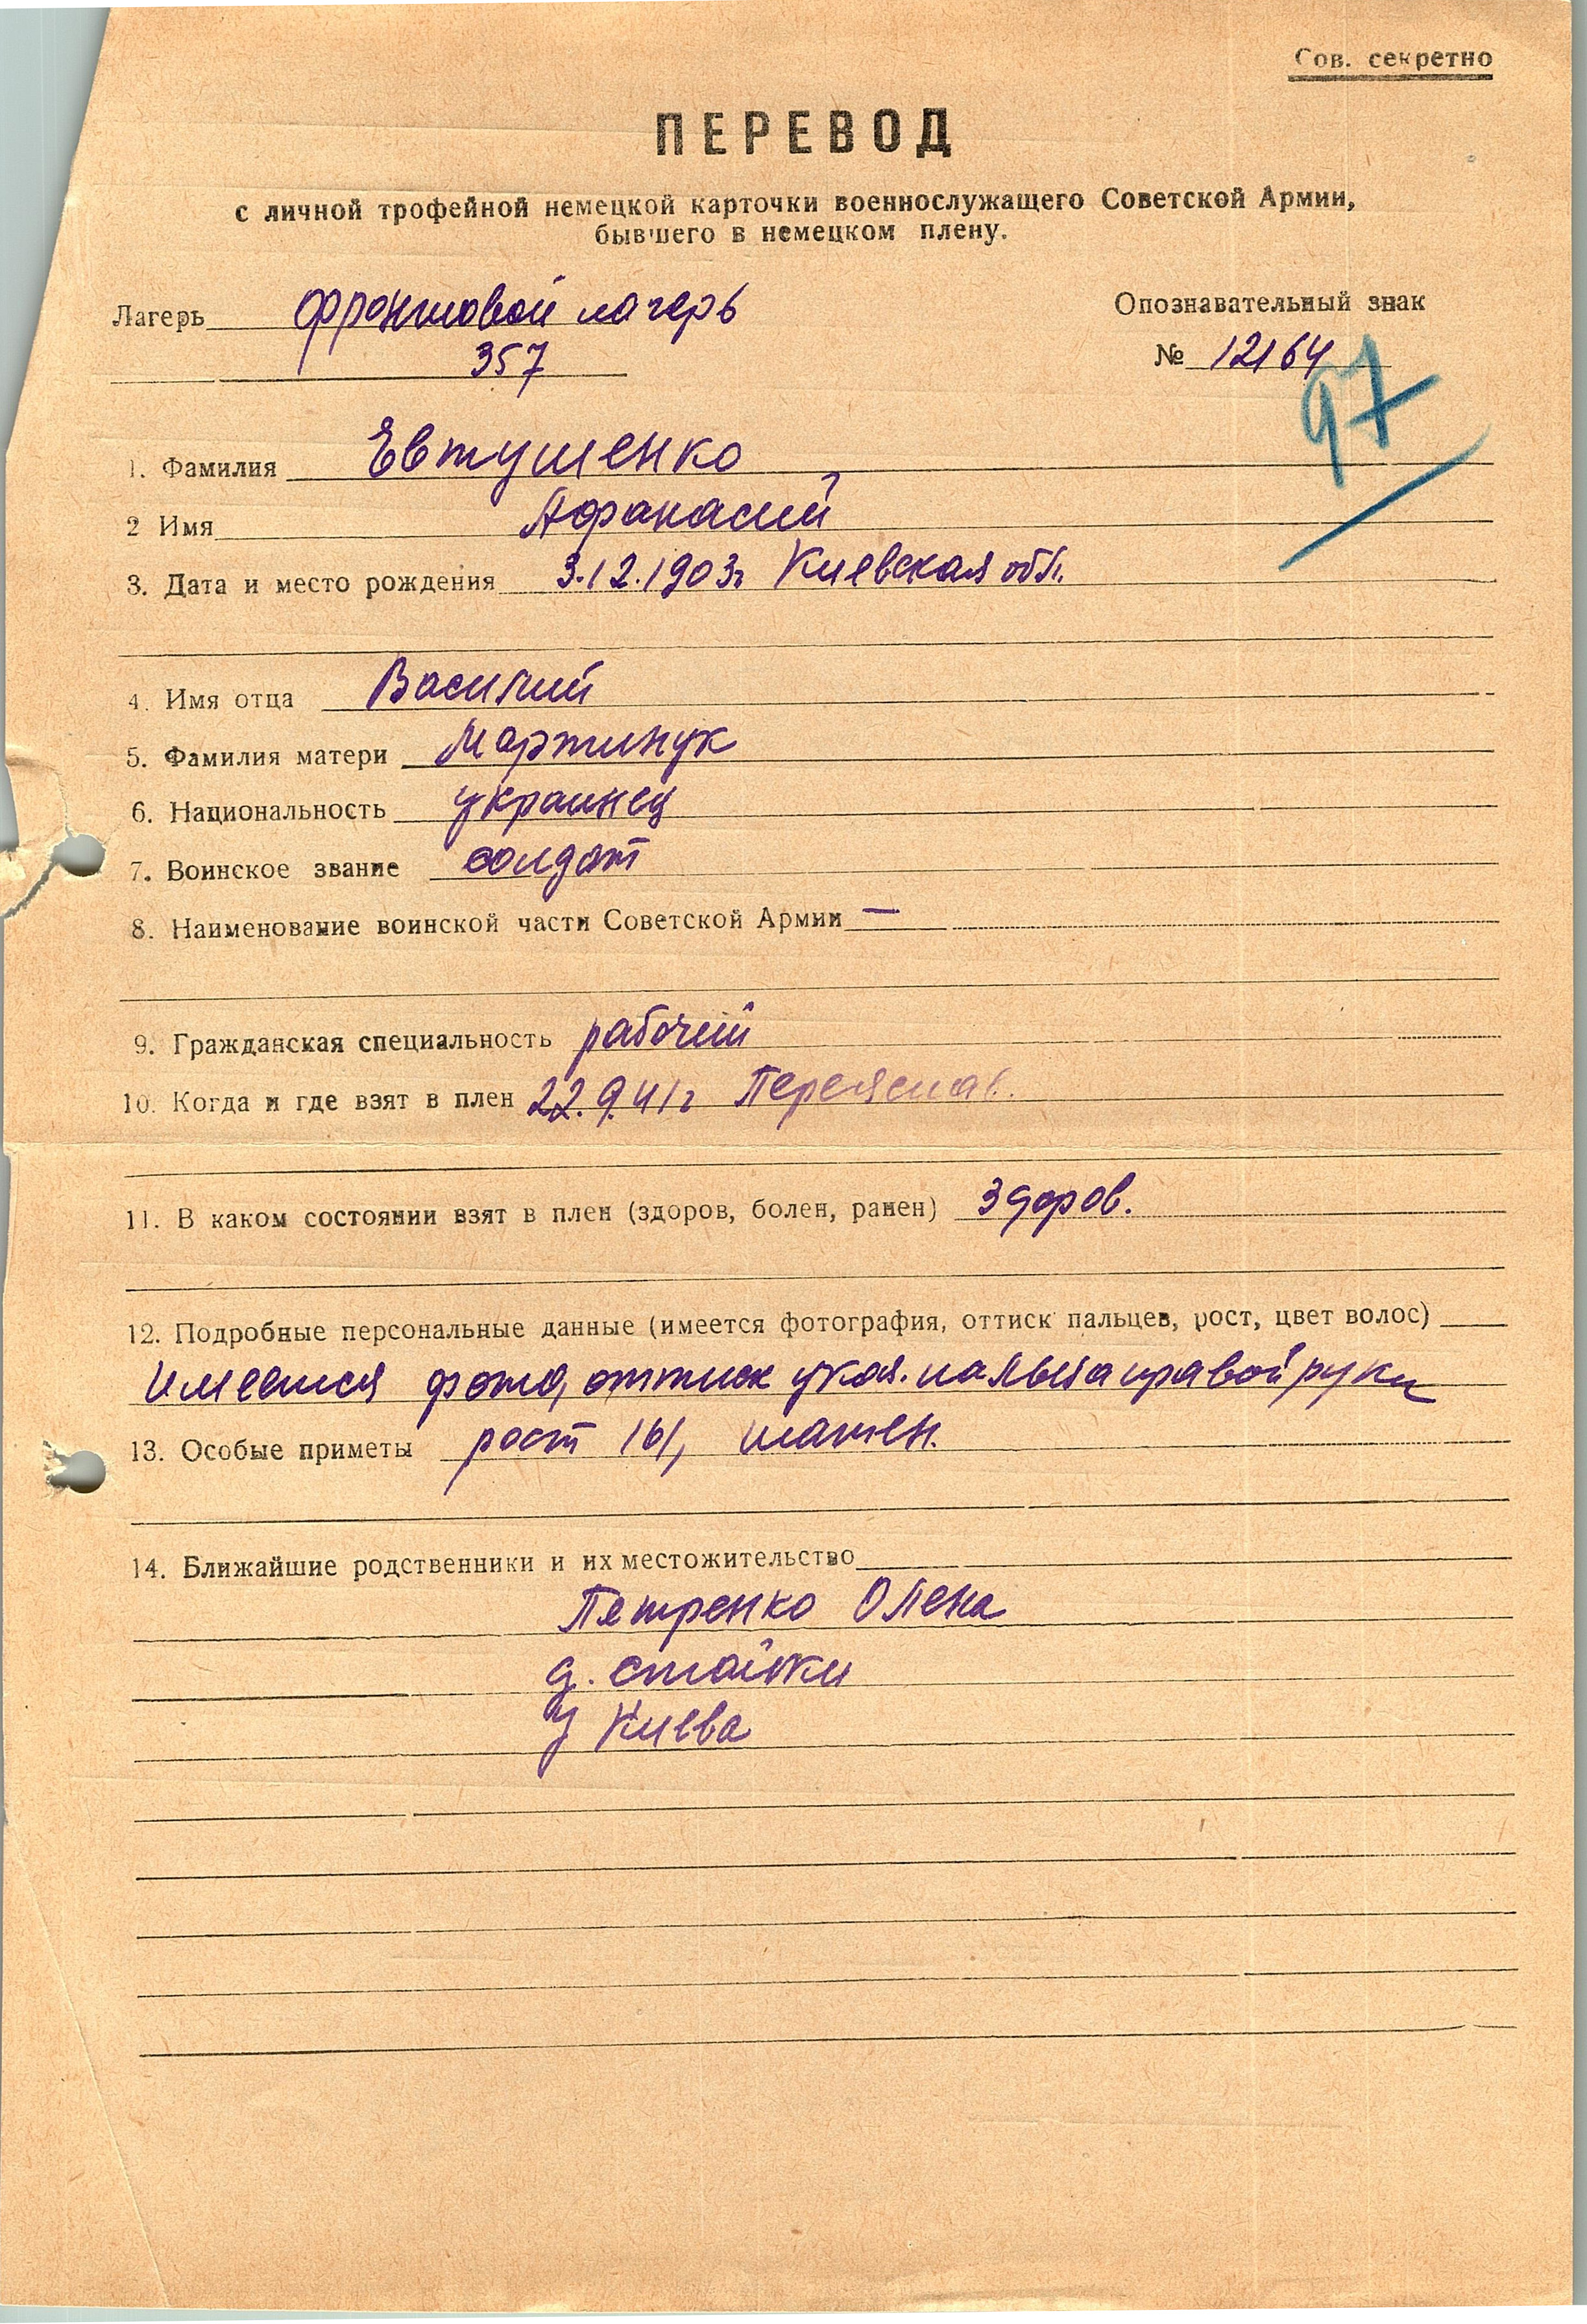 Сов. секретно
ПЕРЕВОД
с личной трофейной немецкой карточки военнослужащего Советской Армии,
бывшего в немецком плену.
Лагерь фронтовой лагерь
357
Опознавательный знак
№ 12164
97
1. Фамилия Евтушенко
2 Имя Афанасий
3. Дата и место рождения 3.12.1903г Киевская обл.
4. Имя отца Василий
5. Фамилия матери Мартинук
6. Национальность украинец
7. Воинское звание солдат
8. Наименование воинской части Советской Армии —
9. Гражданская специальность рабочий
10. Когда и где взят в плен 22.9.41г Переяслав.
11. В каком состоянии взят в плен (здоров, болен, ранен) здоров.
12. Подробные персональные данные (имеется фотография, оттиск пальцев, рост, цвет волос)
Имеется фото, оттиск указ. пальца правой руки
13. Особые приметы рост 161, шатен.
14. Ближайшие родственники и их местожительство
Петренко Олена
д. Стайки
у Киева